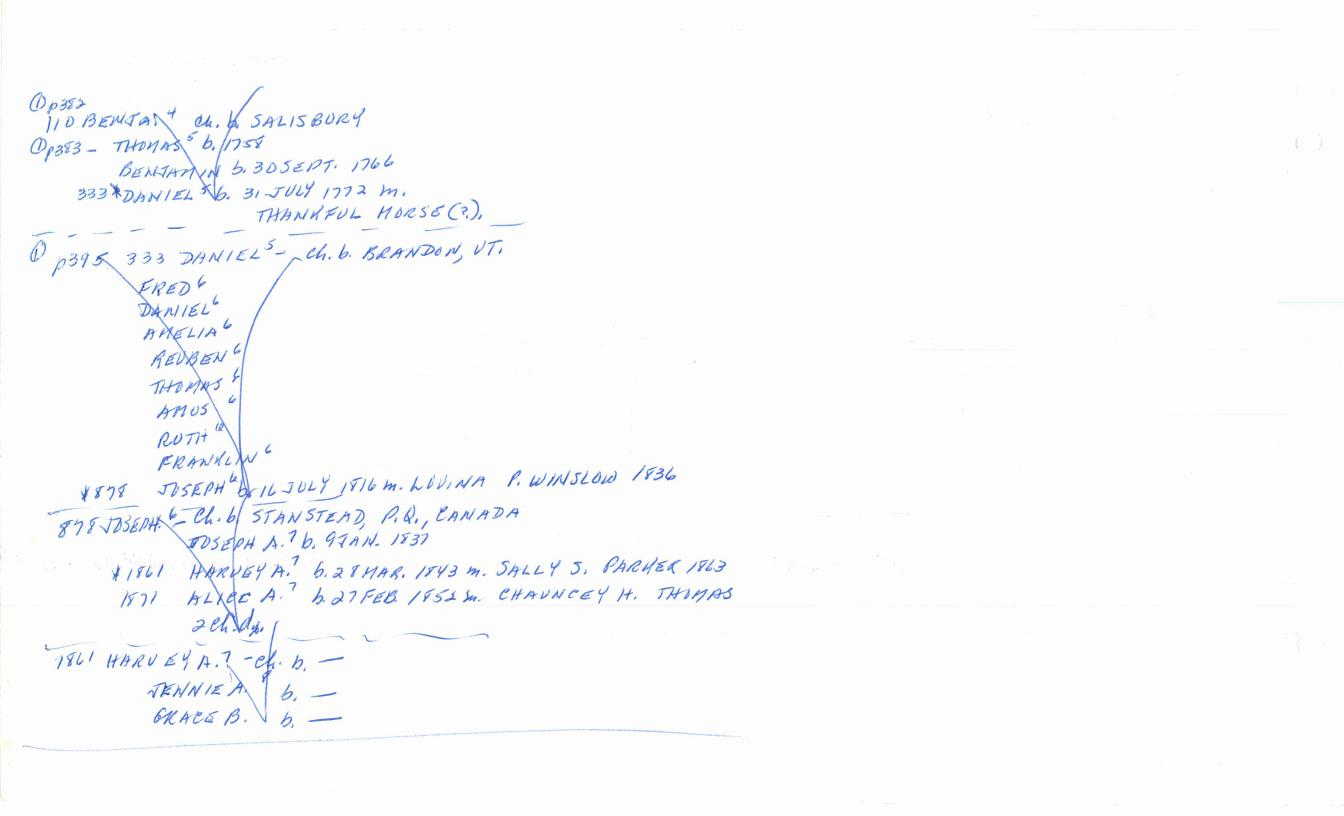 ① p382
110 BENJA.⁴ Ch. b. SALISBURY
① p383 - THOMAS⁵ b. 1758
BENJAMIN b. 30 SEPT. 1766
333 * DANIEL⁵ b. 31 JULY 1772 m.
THANKFUL MORSE (?).
① p395 333 DANIEL⁵ - Ch. b. BRANDON, VT.
FRED⁶
DANIEL⁶
AMELIA⁶
REUBEN⁶
THOMAS⁶
AMOS⁶
RUTH⁶
FRANKLIN⁶
*878 JOSEPH⁶ b. 16 JULY 1816 m. LOVINA P. WINSLOW 1836
878 JOSEPH.⁶ - Ch. b. STANSTEAD, P.Q., CANADA
JOSEPH A.⁷ b. 9 JAN. 1837
*1861 HARVEY A.⁷ b. 28 MAR. 1843 m. SALLY S. PARKER 1863
1871 ALICE A.⁷ b. 27 FEB 1852 m. CHAUNCEY H. THOMAS
2 Ch. dy.
1861 HARVEY A.⁷ - Ch. b. —
JENNIE A.⁸ b. —
GRACE B. b. —